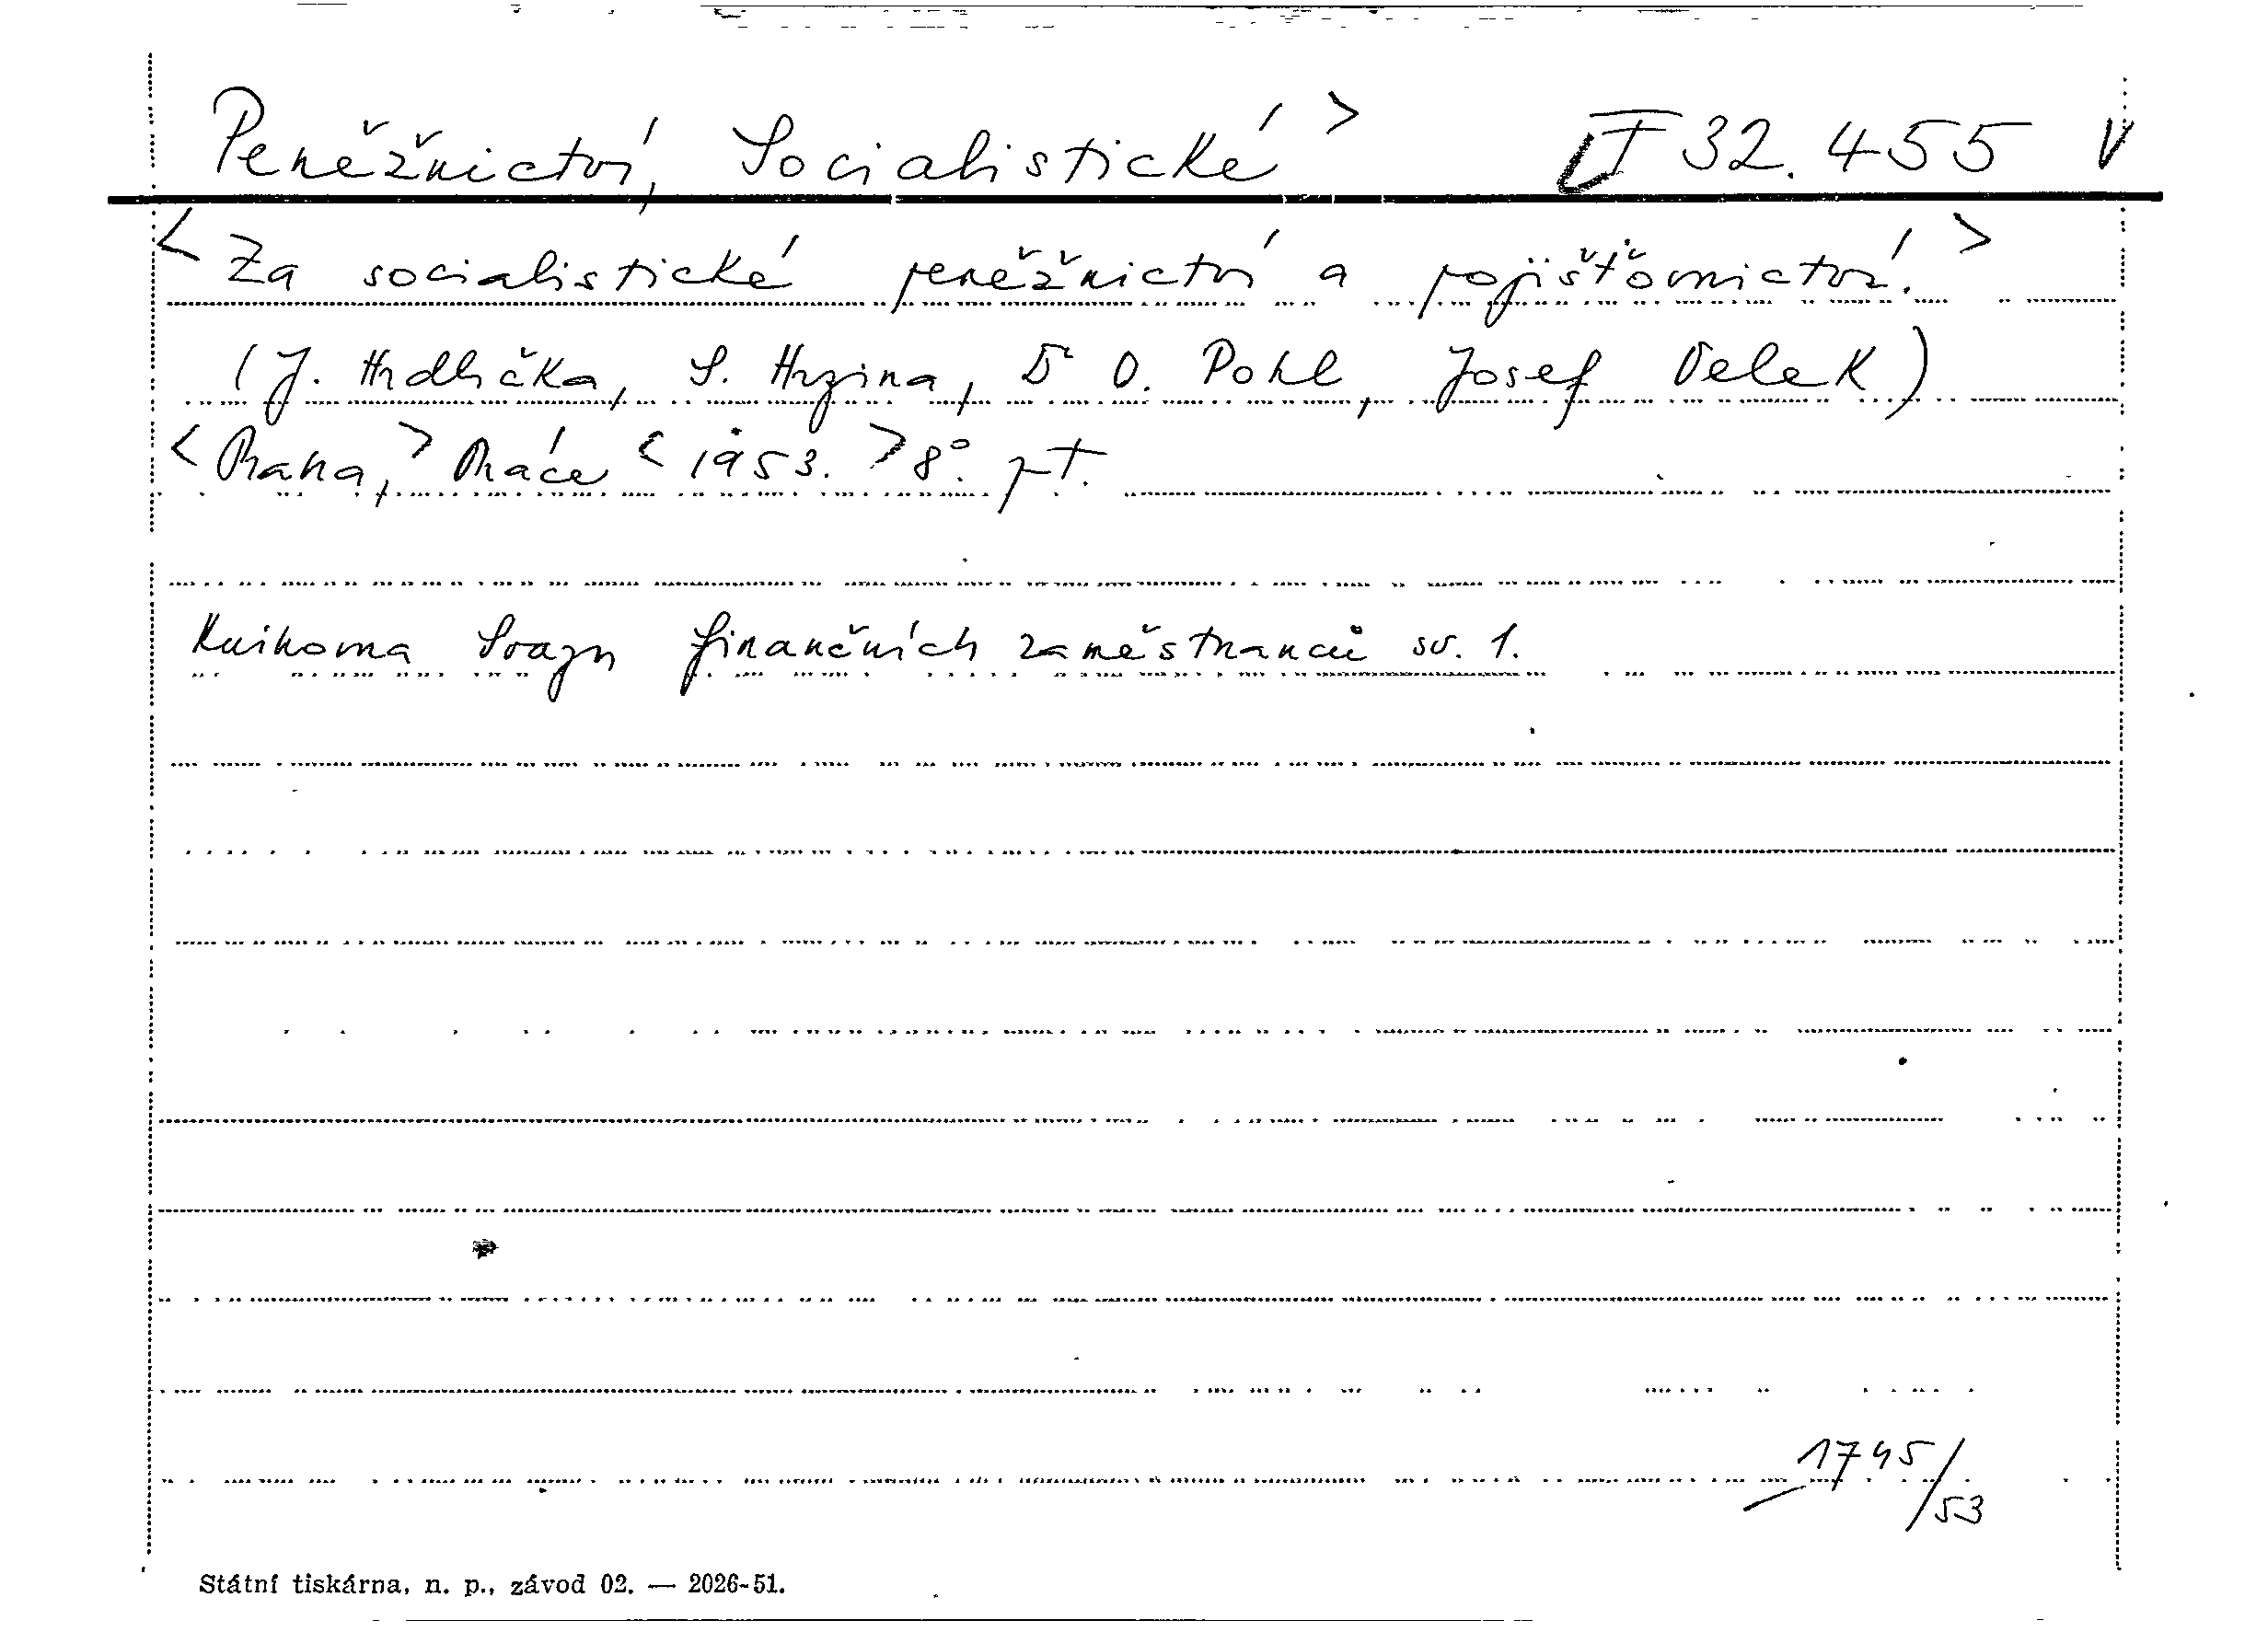 Peněžnictví, Socialistické > I 32.455 V
< Za socialistické peněžnictví a pojišťovnictví. >
(J. Hrdlička, S. Hrzina, Dr O. Pohl, Josef Velek)
< Praha, > Práce < 1953. > 8°. pt.
Knihovna Svazu finančních zaměstnanců sv. 1.
1745/53
Státní tiskárna, n. p., závod 02. — 2026-51.